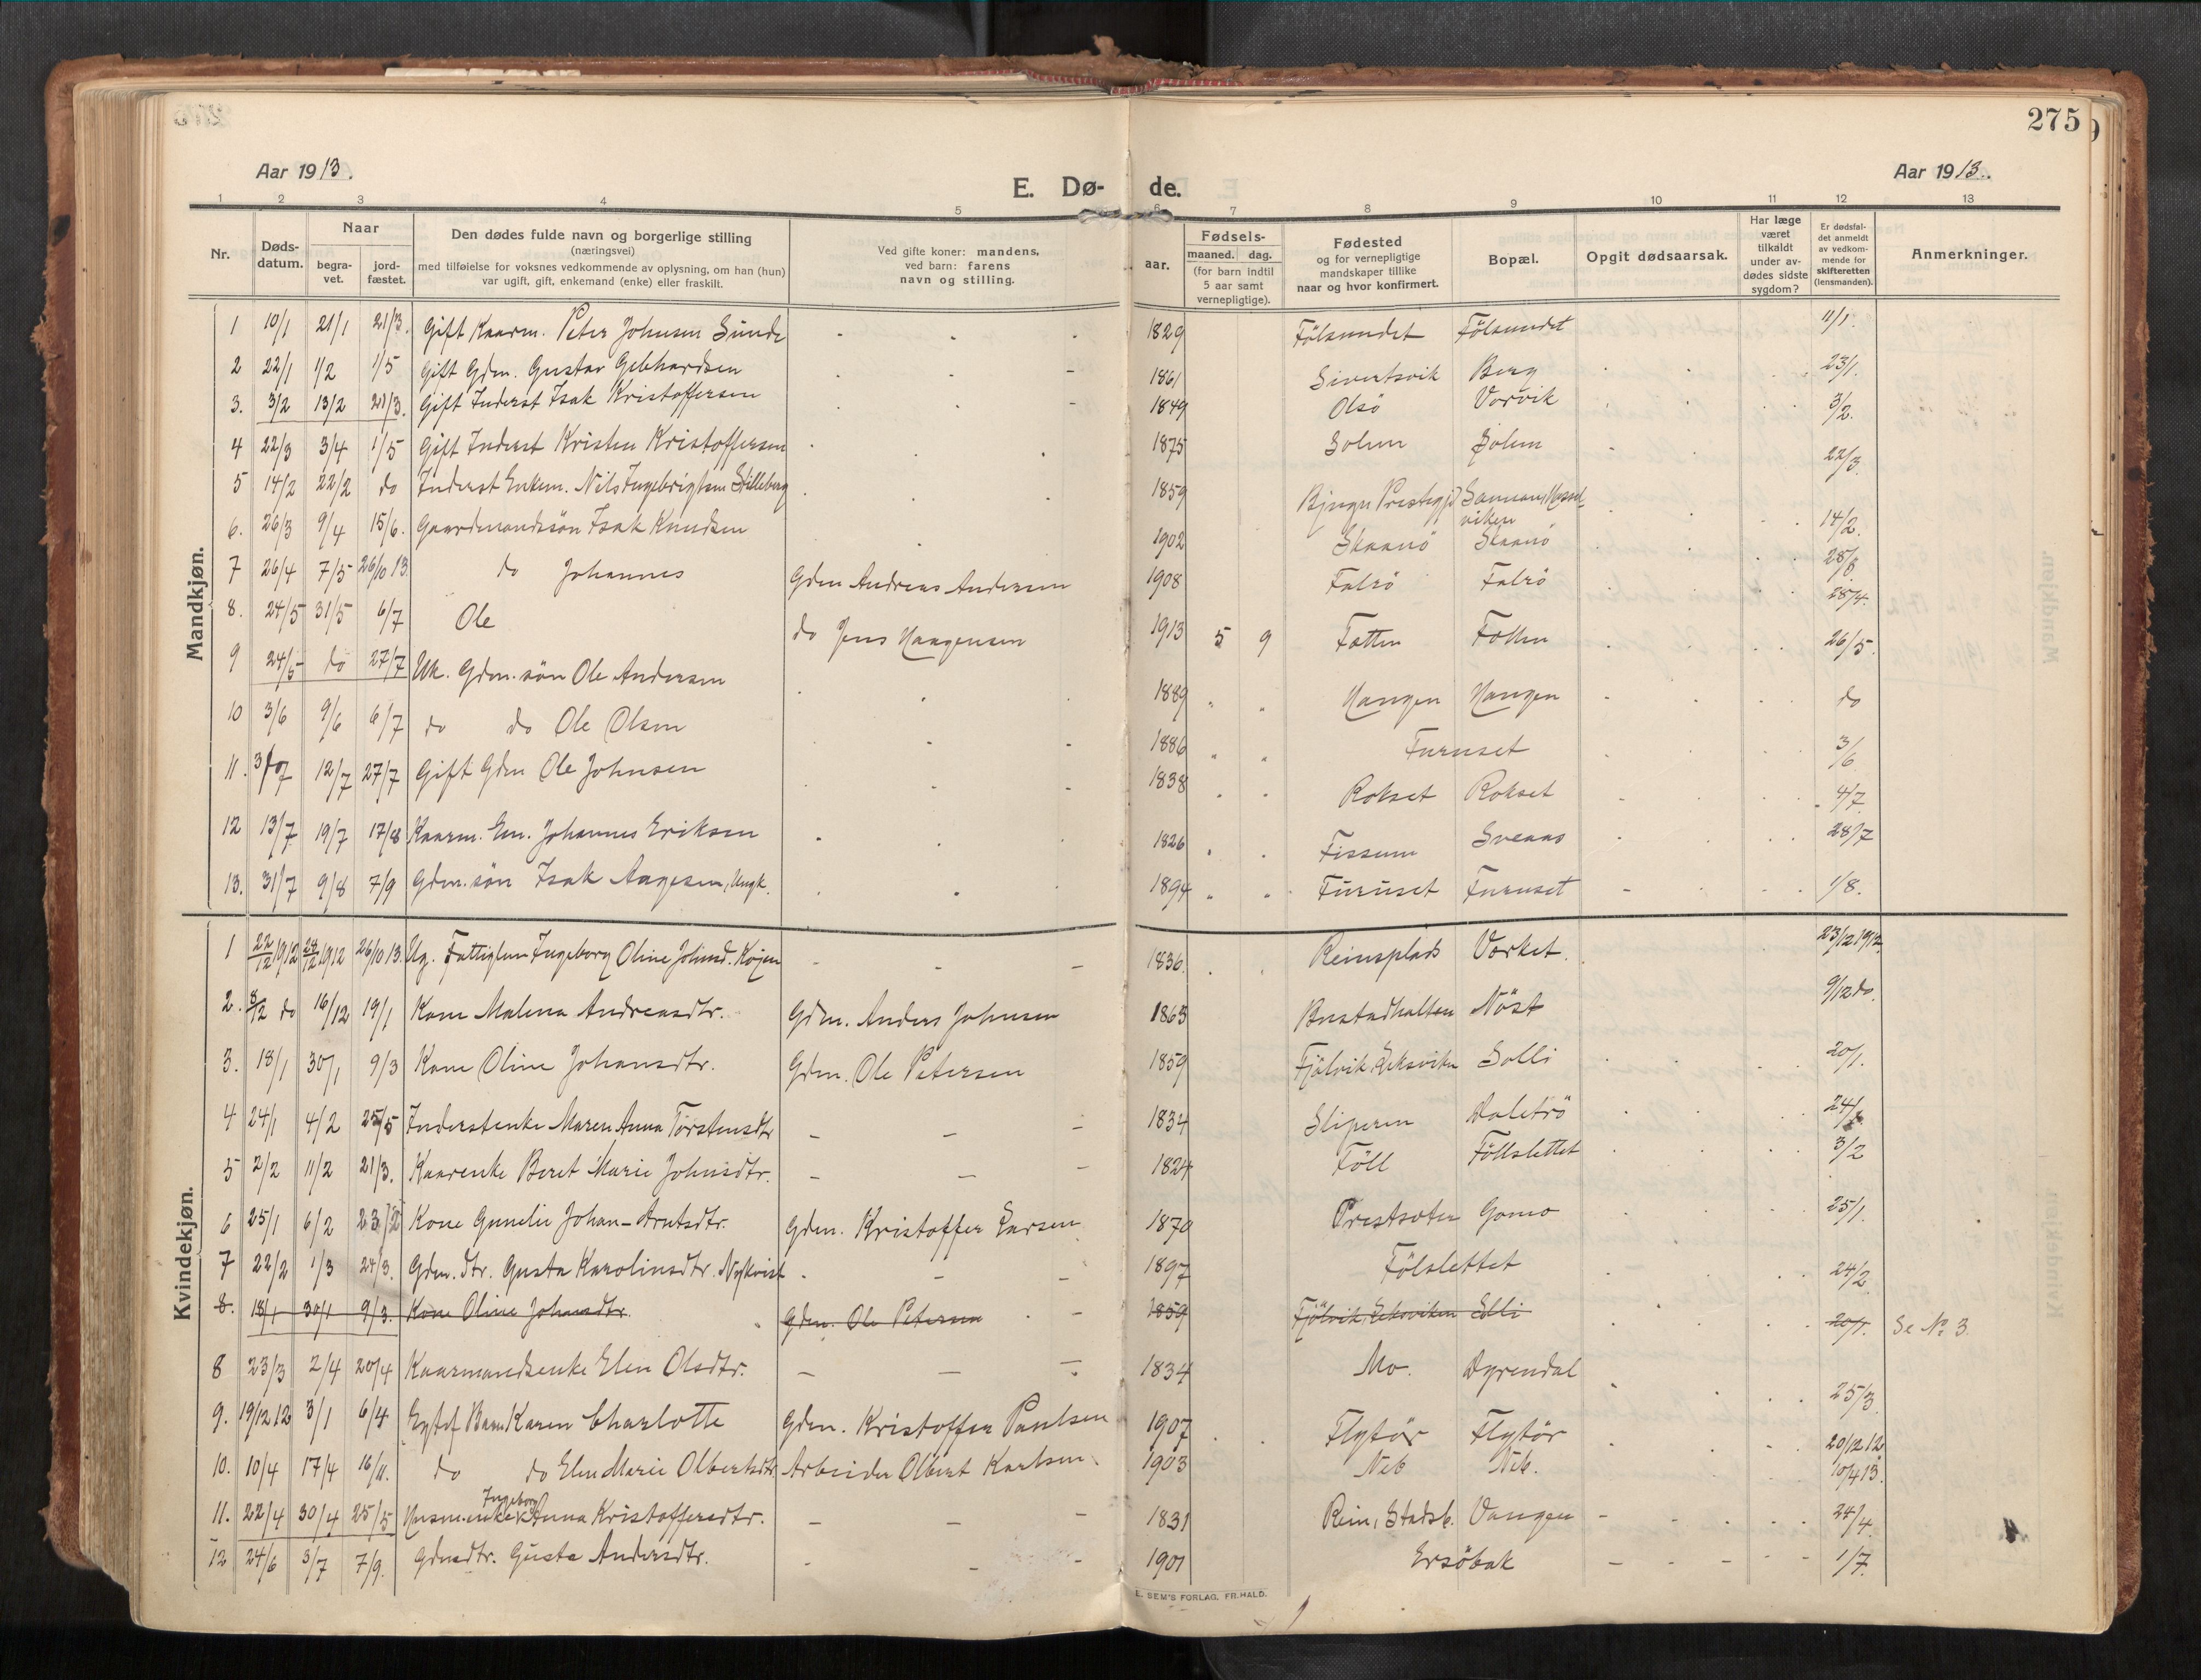 275
Aar 1913.
Aar 1913.
E. Dø- de.
1 2 3 4 5 6 7 8 9 10 11 12 13
Nr.
Døds-
datum.
Naar
begra-
vet.
jord-
fæstet.
Den dødes fulde navn og borgerlige stilling
(næringsvei)
med tilføielse for voksnes vedkommende av oplysning, om han (hun)
var ugift, gift, enkemand (enke) eller fraskilt.
Ved gifte koner: mandens,
ved barn: farens
navn og stilling.
Fødsels-
aar.
maaned. dag.
(for barn indtil
5 aar samt
vernepligtige).
Fødested
og for vernepligtige
mandskaper tillike
naar og hvor konfirmert.
Bopæl.
Opgit dødsaarsak.
Har læge
været
tilkaldt
under av-
dødes sidste
sygdom?
Er dødsfal-
det anmeldt
av vedkom-
mende for
skifteretten
(lensmanden).
Anmerkninger.
Mandkjøn.
1 10/1 21/1 21/3. Gift Kaarm. Peter Johnsen Sunde - - - 1829 Fölsundet Fölsundet 11/1.
2 22/1 1/2 1/5 Gift Gdm. Gustav Gebhardsen - - - 1861 Sivertsvik Berg 23/1.
3. 3/2 13/2 21/3. Gift Inderst Isak Kristoffersen - - - 1849 Olsö Vorvik 3/2.
4 22/3 3/4 1/5 Gift Inderst Kristen Kristoffersen 1875 Solem Solem 22/3.
5 14/2 22/2 do Inderst Enkem. Nils Ingebrigtsen Stilleberg 1859 Bjugn Prestegj. Sannan, Hassel-
viken 14/2.
6. 26/3 9/4 15/6. Gaardmandssön Isak Knudsen 1902 Skaanö Skaanö
7 26/4 7/5 26/10 13. do Johannes Gdm Andreas Andersen 1908 Falrö Falrö 28/4.
8. 24/5 31/5 6/7 Ole do Jens Haagensen 1913 5 9 Fatten Fatten 26/5.
9 24/5 do 27/7 Uk. Gdm. sön Ole Andersen 1889 Hangen Hangen do
10 3/6 9/6 6/7 do do Ole Olsen 1886 Furuset 3/6
11. 12/7 27/7 Gift Gdm Ole Johnsen 1838 Rokset Rokset 4/7
12 13/7 19/7 17/8 Kaarm. Em. Johannes Eriksen 1826 Fissum Sveaas 28/7
13. 31/7 9/8 7/9 Gdm. sön Isak Aagesen, Ungk. 1894 Furuset Furuset 1/8.
Kvindekjøn.
1 22/12 1912 28/12 1912 26/10 13. Ug. Fattiglem Ingeborg Oline Johnsd. Kojen - - - 1836. Reinsplads Værket. 23/12 1912.
2. 8/12 do 16/12 19/1 Kone Malena Andreasdtr. Gdm. Anders Johnsen 1865 Bustadhalten Nöst 9/12 do.
3. 18/1 30/1 9/3 Kone Oline Johansdtr. Gdm. Ole Petersen 1859 Fjölvik, Leksviken Solli 20/1.
4 24/1 4/2 25/5 Inderstenke Maren Anna Torstensdtr - - - 1834 Sliperen Daletrö 24/1
5 2/2 11/2 21/3. Kaarenke Beret Marie Johnsdtr. - - - 1824 Föll Föllslettet 3/2
6 25/1 6/2 23/2 Kone Gunelie Johan-Arntsdtr. Gdm. Kristoffer Larsen 1870 Prestsæter Gomo 25/1.
7 22/2 1/3 24/3. Gdm. dtr. Gusta Karolinsdtr. Nykvist - - - 1897 Fölslettet 24/2
8. 18/1 30/1 9/3. Kone Oline Johansdtr. Gdm. Ole Petersen 1859 Fjölvik, Leksviken Solli 20/1. Se No 3
8 23/3 2/4 20/4 Kaarmandsenke Elen Olsdtr. - - - 1834 Mo. Dyrendal 25/3.
9. 19/12 12 3/1 6/4 Egtef Barn Karen Charlotte Gdm. Kristoffer Paulsen 1907 Flytör Flytör 20/12 12
10. 10/4 17/4 16/11. do do Elen Marie Olbertsdtr. Arbeider Olbert Karlsen 1903 Neb Neb. 10/4 13.
Ingeborg
11. 22/4 30/4 25/5 Husm. enke Anna Kristoffersdtr. - - - 1831 Rein, Stadsb. Vangen 24/4.
12 24/6 3/7 7/9. Gdmdtr. Gusta Andersdtr. - - - 1901 Ersöbak 1/7.
E. SEM'S FORLAG, FR.HALD.